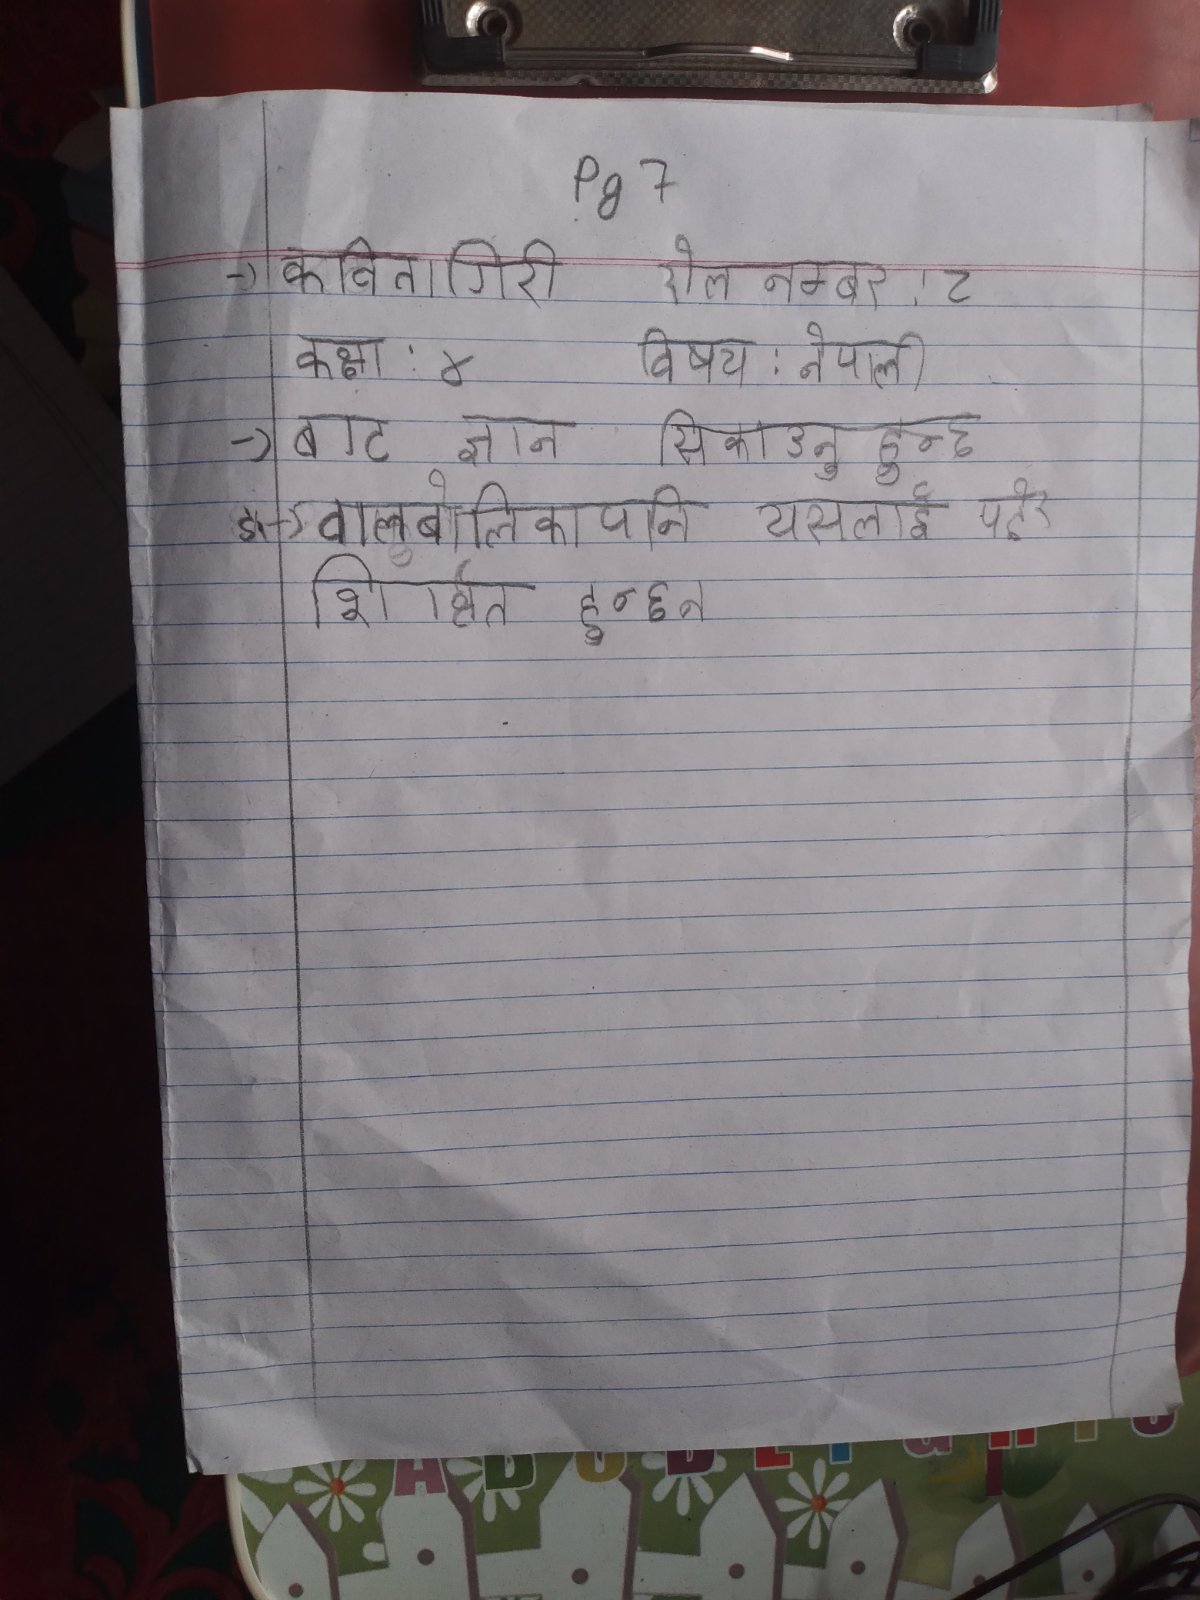 Pg 7
→ कविता गिरी रोल नम्बर : ८
कक्षा : ४ विषय : नेपाली
→ बाट ज्ञान सिकाउनु हुन्छ
ङ → वालुबोलिका पनि यसलाई पढेर
शिर्क्षित हुन्छन
A B C D E F G H I